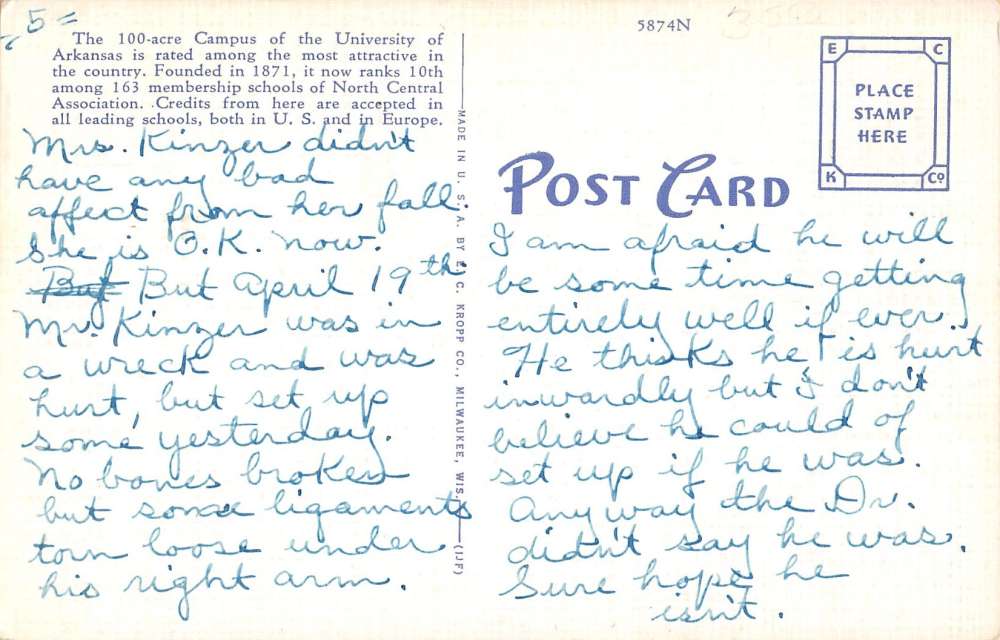 5
The 100-acre Campus of the University of
Arkansas is rated among the most attractive in
the country. Founded in 1871, it now ranks 10th
among 163 membership schools of North Central
Association. Credits from here are accepted in
all leading schools, both in U. S. and in Europe.
Mrs. Kinzer didn't
have any bad
affect from her fall.
She is O.K. now.
But But April 19th
Mr. Kinzer was in
a wreck and was
hurt, but set up
some yesterday.
No bones broken
but some ligaments
torn loose under
his right arm.
MADE IN U. S. A. BY E. C. KROPP CO., MILWAUKEE, WIS. (IJF)
5874N
E C
PLACE
STAMP
HERE
K Co
POST CARD
I am afraid he will
be some time getting
entirely well if ever.
He thinks he is hurt
inwardly but I don't
believe he could of
set up if he was.
Anyway the Dr.
didn't say he was.
Sure hope he
isn't.